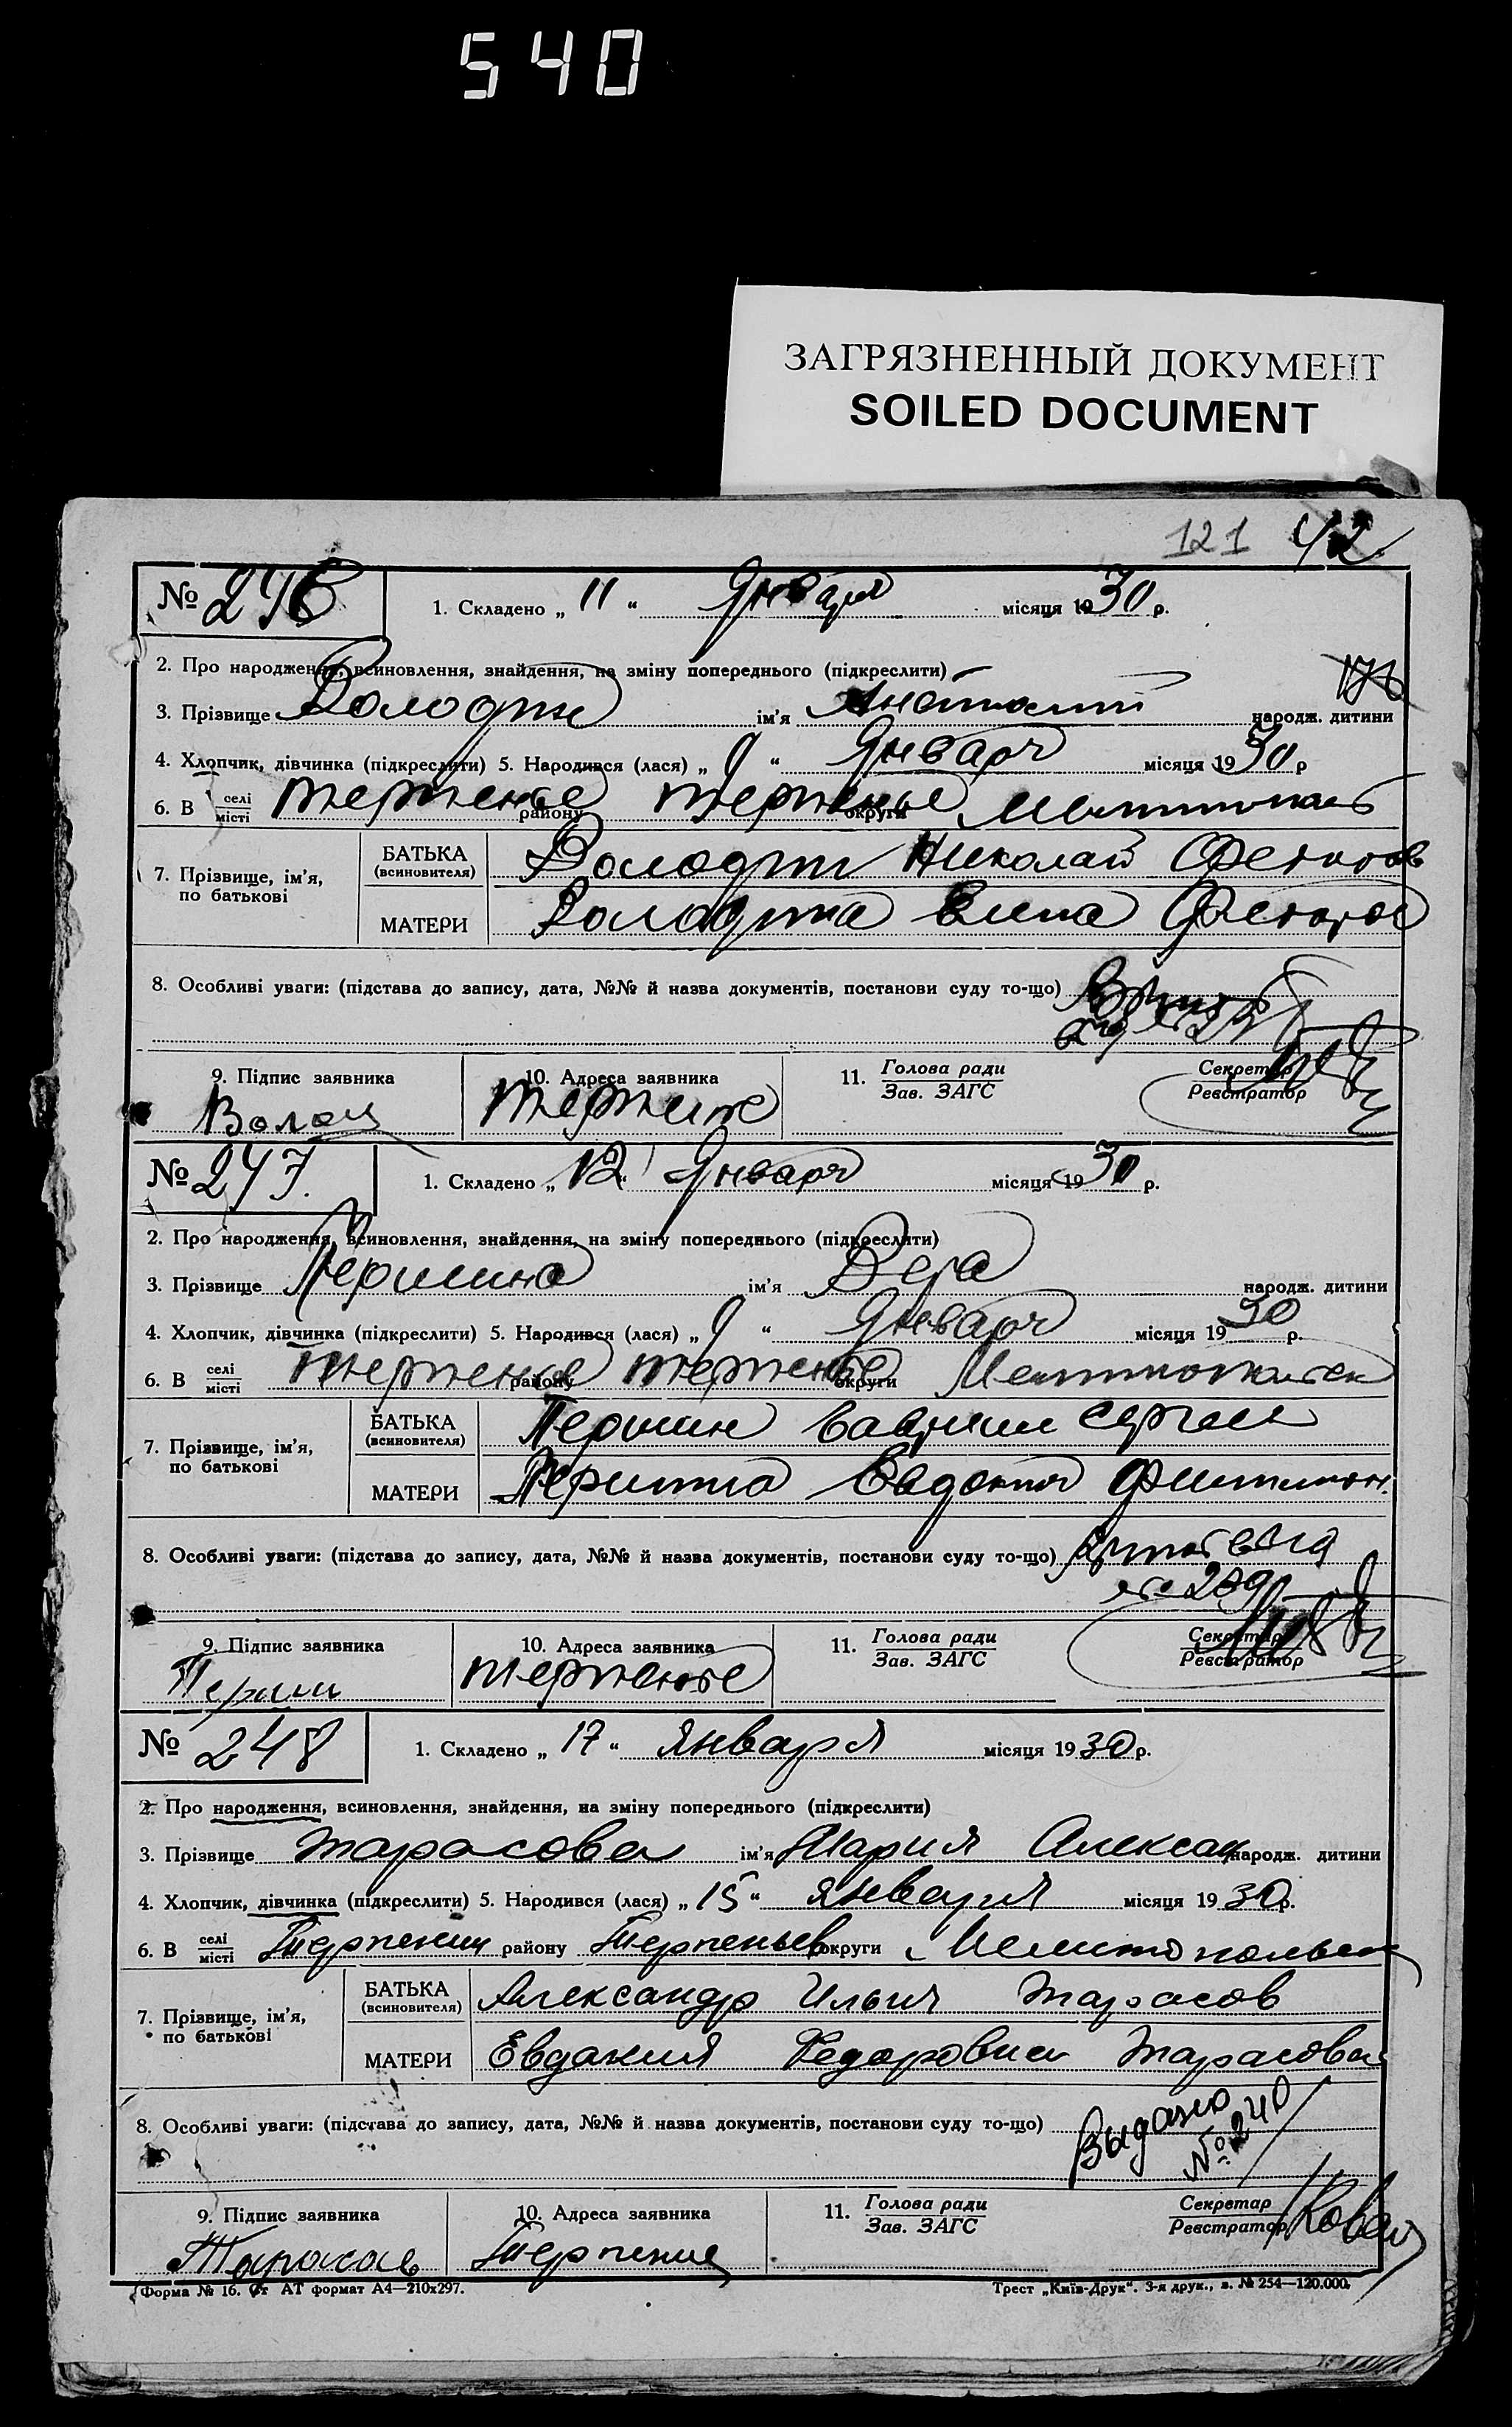 540
ЗАГРЯЗНЕННЫЙ ДОКУМЕНТ
SOILED DOCUMENT
121 42
№ 246 1. Складено „ 11 “ Января місяця 1930 р.
2. Про народження, всиновлення, знайдення, на зміну попереднього (підкреслити)
3. Прізвище Володин ім'я Анатолий народж. дитини
4. Хлопчик, дівчинка (підкреслити) 5. Народився (лася) „ 9 “ Января місяця 1930 р
6. В селі/місті Терпенье району Терпенье округи
7. Прізвище, ім'я, по батькові
БАТЬКА (всиновителя) Володин Николай
МАТЕРИ Володина
8. Особливі уваги: (підстава до запису, дата, №№ й назва документів, постанови суду то-що)
9. Підпис заявника 10. Адреса заявника 11. Голова ради/Зав. ЗАГС Секретар/Реєстратор
Волод Терпенье
№ 247. 1. Складено „ 12 “ Января місяця 1930 р.
2. Про народження, всиновлення, знайдення, на зміну попереднього (підкреслити)
3. Прізвище Першина ім'я Вера народж. дитини
4. Хлопчик, дівчинка (підкреслити) 5. Народився (лася) „ 9 “ Января місяця 1930 р.
6. В селі/місті Терпенье району Терпенье округи
7. Прізвище, ім'я, по батькові
БАТЬКА (всиновителя) Першин Сергее
МАТЕРИ Першина Евдокия
8. Особливі уваги: (підстава до запису, дата, №№ й назва документів, постанови суду то-що)
№ 239
9. Підпис заявника 10. Адреса заявника 11. Голова ради/Зав. ЗАГС Секретар/Реєстратор
Перши Терпенье
№ 248 1. Складено „ 17 “ Января місяця 1930 р.
2. Про народження, всиновлення, знайдення, на зміну попереднього (підкреслити)
3. Прізвище Тарасова ім'я Мария Алексан народж. дитини
4. Хлопчик, дівчинка (підкреслити) 5. Народився (лася) „ 15 “ Января місяця 1930 р.
6. В селі/місті Терпении району Терпеньев округи Мелитопольск
7. Прізвище, ім'я, по батькові
БАТЬКА (всиновителя) Александр Ильич Тарасов
МАТЕРИ Евдакия Федоровна Тарасова
8. Особливі уваги: (підстава до запису, дата, №№ й назва документів, постанови суду то-що) Выдано
№ 240
9. Підпис заявника 10. Адреса заявника 11. Голова ради/Зав. ЗАГС Секретар/Реєстратор
Тарасов Терпение
Форма № 16. Ст АТ формат А4—210x297. Трест „Київ-Друк“. 3-я друк., з. № 254—120.000.